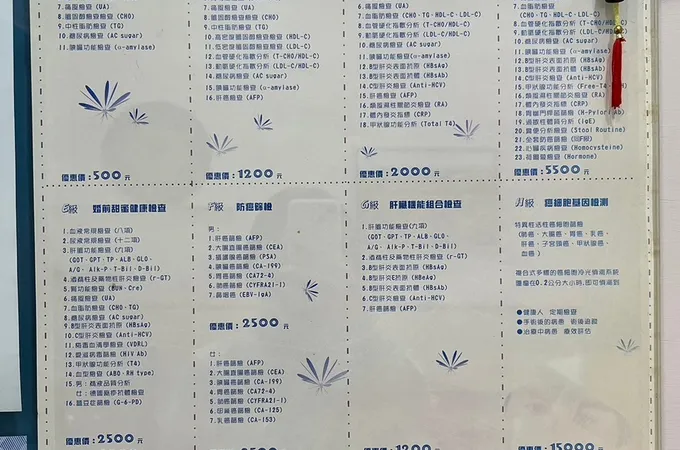 7. 痛風檢查 (UA)
8. 膽固醇檢查 (CHO)
9. 中性脂肪檢查 (TG)
10. 糖尿病檢查 (AC sugar)
11. 胰臟功能檢查 (α-amylase)
優惠價:500元
7. 痛風檢查 (UA)
8. 膽固醇檢查 (CHO)
9. 中性脂肪檢查 (TG)
10. 高密度膽固醇檢查 (HDL-C)
11. 低密度膽固醇檢查 (LDL-C)
12. 血管硬化指數分析 (T-CHO/HDL-C)
13. 動脈硬化指數分析 (LDL-C/HDL-C)
14. 糖尿病檢查 (AC sugar)
15. 胰臟功能檢查 (α-amylase)
16. 肝癌篩檢 (AFP)
優惠價:1200元
7. 血脂肪檢查
(CHO·TG·HDL-C·LDL-C)
8. 血管硬化指數分析 (T-CHO/HDL-C)
9. 動脈硬化指數分析 (LDL-C/HDL-C)
10. 糖尿病檢查 (AC sugar)
11. 胰臟功能檢查 (α-amylase)
12. B型肝炎表面抗原 (HBsAg)
13. B型肝炎表面抗體 (HBsAb)
14. C型肝炎檢查 (Anti-HCV)
15. 肝癌篩檢 (AFP)
16. 類風濕關節炎檢查 (RA)
17. 體內發炎指標 (CRP)
18. 甲狀腺功能分析 (Total T4)
優惠價:2000元
7. 血脂肪檢查
(CHO·TG·HDL-C·LDL-C)
8. 血管硬化指數分析 (T-CHO/HDL-C)
9. 動脈硬化指數分析 (LDL-C/HDL-C)
10. 糖尿病檢查 (AC sugar)
11. 胰臟功能檢查 (α-amylase)
12. B型肝炎表面抗原 (HBsAg)
13. B型肝炎表面抗體 (HBsAb)
14. C型肝炎檢查 (Anti-HCV)
15. 甲狀腺功能分析 (Free-T4
16. 類風濕性關節炎檢查 (RA)
17. 體內發炎指標 (CRP)
18. 胃幽門桿菌篩檢 (H-Pylori Ab)
19. 過敏性體質分析 (IgE)
20. 糞便分析檢查 (Stool Routine)
21. 全套防癌篩檢 (回F級)
22. 心臟疾病檢查 (Homocysteine)
23. 荷爾蒙檢查 (Hormone)
優惠價:5500元
E級 婚前甜蜜健康檢查
1. 血液常規檢查 (八項)
2. 尿液常規檢查 (十二項)
3. 肝膽功能檢查 (六項)
(GOT·GPT·TP·ALB·GLO·
A/G· Alk-P·T-Bil·D-Bil)
4. 酒精性及藥物性肝炎檢查 (r-GT)
5. 腎功能檢查 (BUN·Cre)
6. 痛風篩檢 (UA)
7. 血脂肪檢查 (CHO·TG)
8. 糖尿病檢查 (AC sugar)
9. B型肝炎表面抗原 (HBsAg)
10. C型肝炎檢查 (Anti-HCV)
11. 梅毒血清學檢查 (VDRL)
12. 愛滋病毒篩檢 (HIV Ab)
13. 甲狀腺功能分析 (T4)
14. 血型檢查 (ABO·RH type)
15. 男:精液品質分析
女:德國麻疹抗體檢查
16. 蠶豆症篩檢 (G-6-PD)
優惠價:2500元
F級 防癌篩檢
男:
1. 肝癌篩檢 (AFP)
2. 大腸直腸癌篩檢 (CEA)
3. 攝護腺癌篩檢 (PSA)
4. 胰臟癌篩檢 (CA-199)
5. 胃癌篩檢 (CA72-4)
6. 肺癌篩檢 (CYFRA21-1)
7. 鼻咽癌篩檢 (EBV-IgA)
優惠價:2500元
女:
1. 肝癌篩檢 (AFP)
2. 大腸直腸癌篩檢 (CEA)
3. 胰臟癌篩檢 (CA-199)
4. 胃癌篩檢 (CA72-4)
5. 肺癌篩檢 (CYFRA21-1)
6. 卵巢癌篩檢 (CA-125)
7. 乳癌篩檢 (CA-153)
優惠價:2500元
G級 肝臟機能組合檢查
1. 肝膽功能檢查 (六項)
(GOT·GPT·TP·ALB·GLO·
A/G·Alk-P·T-Bil·D-Bil)
2. 酒精性及藥物性肝炎檢查 (r-GT)
3. B型肝炎表面抗原 (HBsAg)
4. B型肝炎E抗原 (HBeAg)
5. B型肝炎表面抗體 (HBsAb)
6. C型肝炎檢查 (Anti-HCV)
7. 肝癌篩檢 (AFP)
優惠價:1200元
H級 癌細胞基因檢測
特異性活性癌細胞篩檢
(肺癌、大腸癌、胃癌、乳癌、
肝癌、子宮頸癌、甲狀腺癌、
血癌)
複合式多標的癌細胞冷光偵測系統
腫瘤在0.2公分大小時,即可偵測到
●健康人 定期檢查
●手術後的病患 術後追蹤
●治療中病患 療效評估
優惠價:15000元